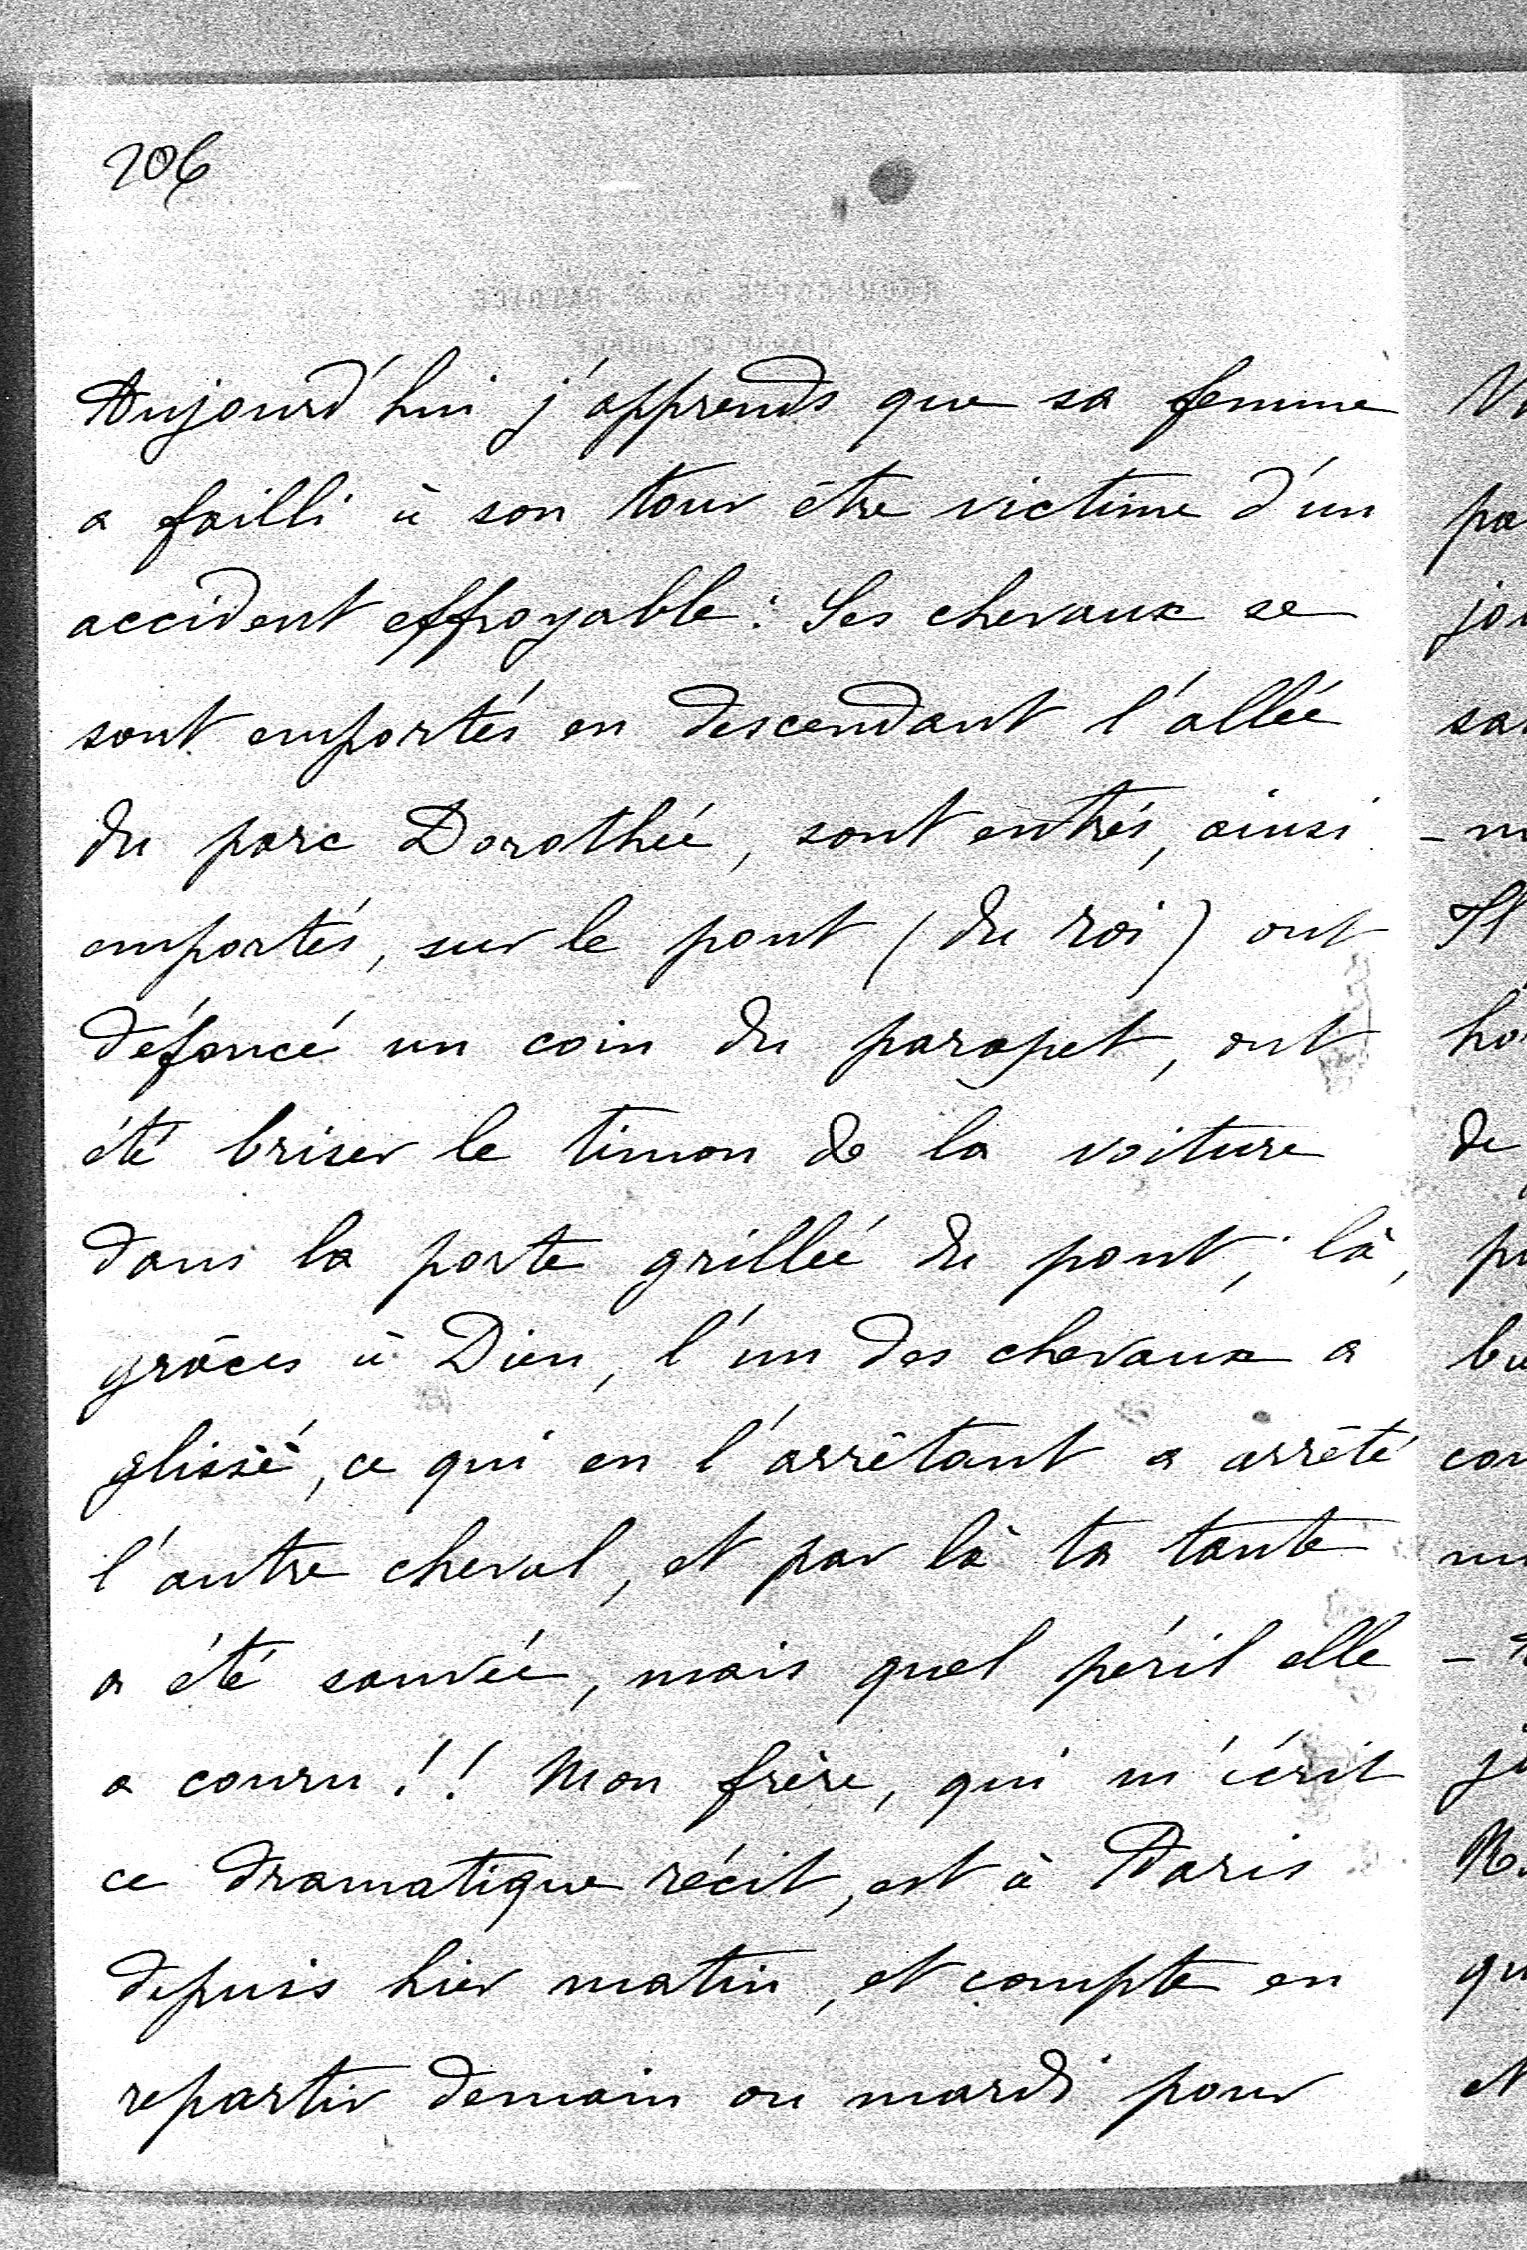 206
Aujourd'hui j'apprends que sa femme
a failli à son tour être victime d'un
accident effroyable : Ses chevaux se
sont emportés en descendant l'allée
du parc Dorothée, sont entrés, ainsi
emportés, sur le pont (du roi) ont
défoncé un coin du parapet, ont
été briser le timon de la voiture
dans la porte grillée du pont ; là,
grâces à Dieu, l'un des chevaux a
glissé, ce qui en l'arrêtant a arrêté
l'autre cheval, et par là ta tante
a été sauvée, mais quel péril elle
a couru !! Mon frère, qui m'écrit
ce dramatique récit, est à Paris
depuis hier matin, et compte en
repartir demain ou mardi pour